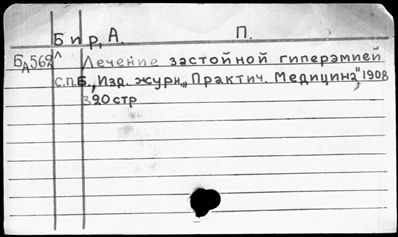 Бир, А. П.
БД562 л Лечение застойной гиперэмией
С.П.Б., Изд. журн. „Практич. Медицина", 1908
320стр